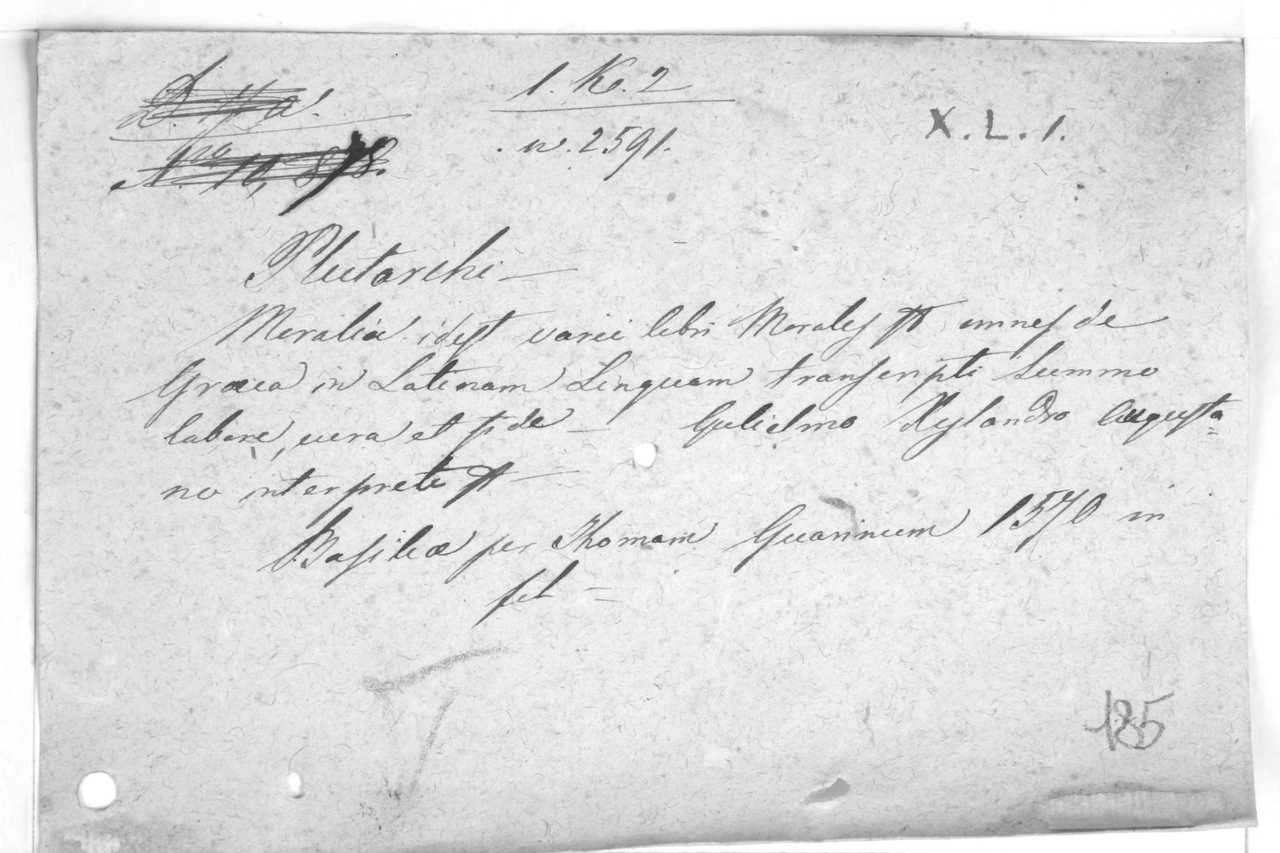 1. K. 2
n. 2591.
X. L. 1.
Plutarchi —
Moralia idest varii libri Morales omnes de
Graeca in Latinam Linguam transcripti summo
labore, cura et fide — Gulielmo Xylandro Augusta=
no interprete —
Basileæ per Thomam Guarinum 1570 in
fol =
185